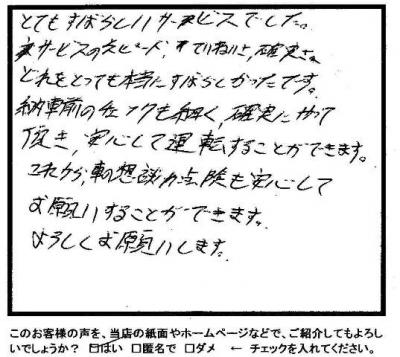 とてもすばらしいサービスでした。
サービスのスピード、ていねいさ、確実さ、
どれをとっても本当にすばらしかったです。
納車前のチェックも細く、確実にやって
頂き、安心して運転することができます。
これから、車の想談か点険も安心して
お願いすることができます。
よろしくお願いします。
このお客様の声を、当店の紙面やホームページなどで、ご紹介してもよろし
いでしょうか? 日はい 口匿名で 口ダメ ← チェックを入れてください。